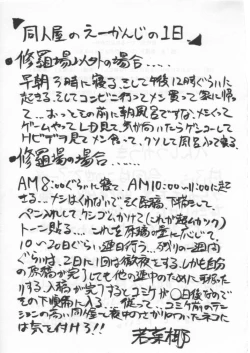 同人屋のえーかんじの1日
•修羅場以外の場合.....
早朝3時に寝る。そして午後12時ぐらいに
起きる。そしてコンビニ行ってメシ買って家に帰っ
て...おっとその前に朝風呂ですな。メシくって
ゲームやってLD見て、気が向いたらゲンコーして
TVビデオ見てメシ食って、クソして風呂入って寝る。
•修羅場の場合......
AM8:00ぐらいに寝て、AM10:00〜11:00に起
きる...メシはくわないでそく原稿。下描きして
ペン入れしてケシゴムかけて(これが超ムカツク)
トーン貼る....これを原稿の量に応じて
10〜20日ぐらい連日行う...残りの一週間
ぐらいは、2日に1回は徹夜をする。しかも自分
の原稿が完了しても他の連中のために手伝った
りする。入稿が完了するとコミケが〇日後なので
その下準備に入る。従って、コミケ前のテン
ションの高い同人屋に夜中のさかりのついたネコに
は気を付けろ!!
若菜椰